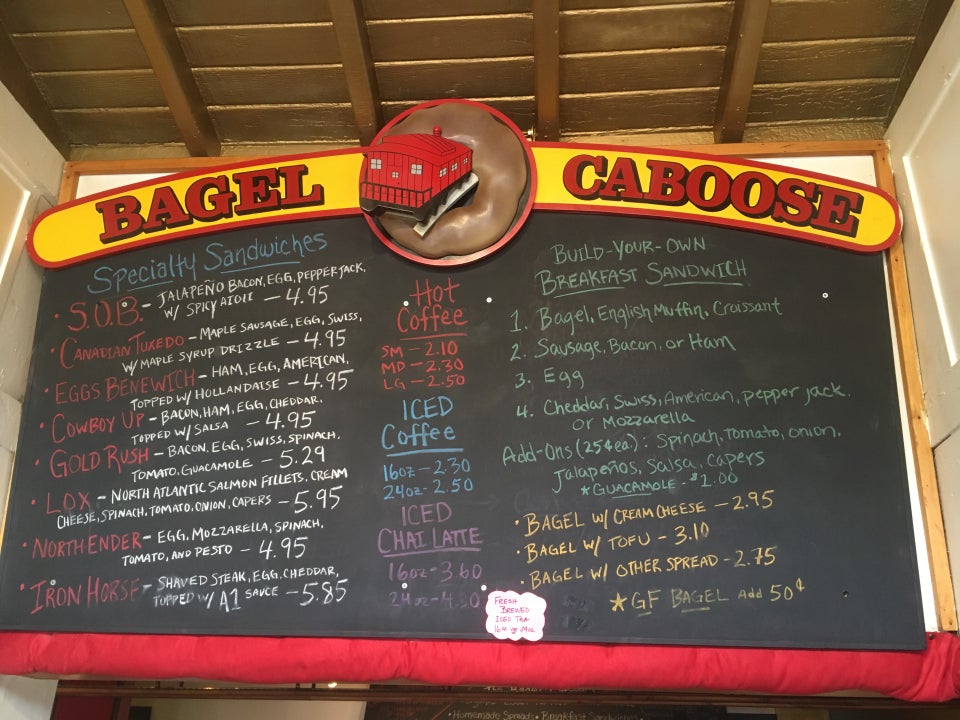 BAGEL CABOOSE
Specialty Sandwiches
· S.O.B. - JALAPEÑO BACON, EGG, PEPPERJACK,
W/ SPICY AIOLI - 4.95
· CANADIAN TUXEDO - MAPLE SAUSAGE, EGG, SWISS,
W/ MAPLE SYRUP DRIZZLE - 4.95
· EGGS BENEWICH - HAM, EGG, AMERICAN,
TOPPED W/ HOLLANDAISE - 4.95
· COWBOY UP - BACON, HAM, EGG, CHEDDAR,
TOPPED W/ SALSA - 4.95
· GOLD RUSH - BACON, EGG, SWISS, SPINACH,
TOMATO, GUACAMOLE - 5.29
· LOX - NORTH ATLANTIC SALMON FILLETS, CREAM
CHEESE, SPINACH, TOMATO, ONION, CAPERS - 5.95
· NORTH ENDER - EGG, MOZZARELLA, SPINACH,
TOMATO, AND PESTO - 4.95
· IRON HORSE - SHAVED STEAK, EGG, CHEDDAR,
TOPPED W/ A1 SAUCE - 5.85
Hot
Coffee
SM - 2.10
MD - 2.30
LG - 2.50
ICED
Coffee
16oz - 2.30
24oz - 2.50
ICED
CHAI LATTE
16oz - 3.60
24oz - 4.30
FRESH
BREWED
ICED TEA
16oz or 24oz
BUILD-YOUR-OWN
BREAKFAST SANDWICH
1. Bagel, English Muffin, Croissant
2. Sausage, Bacon, or Ham
3. Egg
4. Cheddar, Swiss, American, pepper jack,
or Mozzarella
Add-Ons (25¢ ea): Spinach, Tomato, onion,
Jalapeños, Salsa, Capers
*GUACAMOLE - $1.00
· BAGEL W/ CREAM CHEESE - 2.95
· BAGEL W/ TOFU - 3.10
· BAGEL W/ OTHER SPREAD - 2.75
★GF BAGEL Add 50¢
· Homemade Spreads · Breakfast Sandwiches